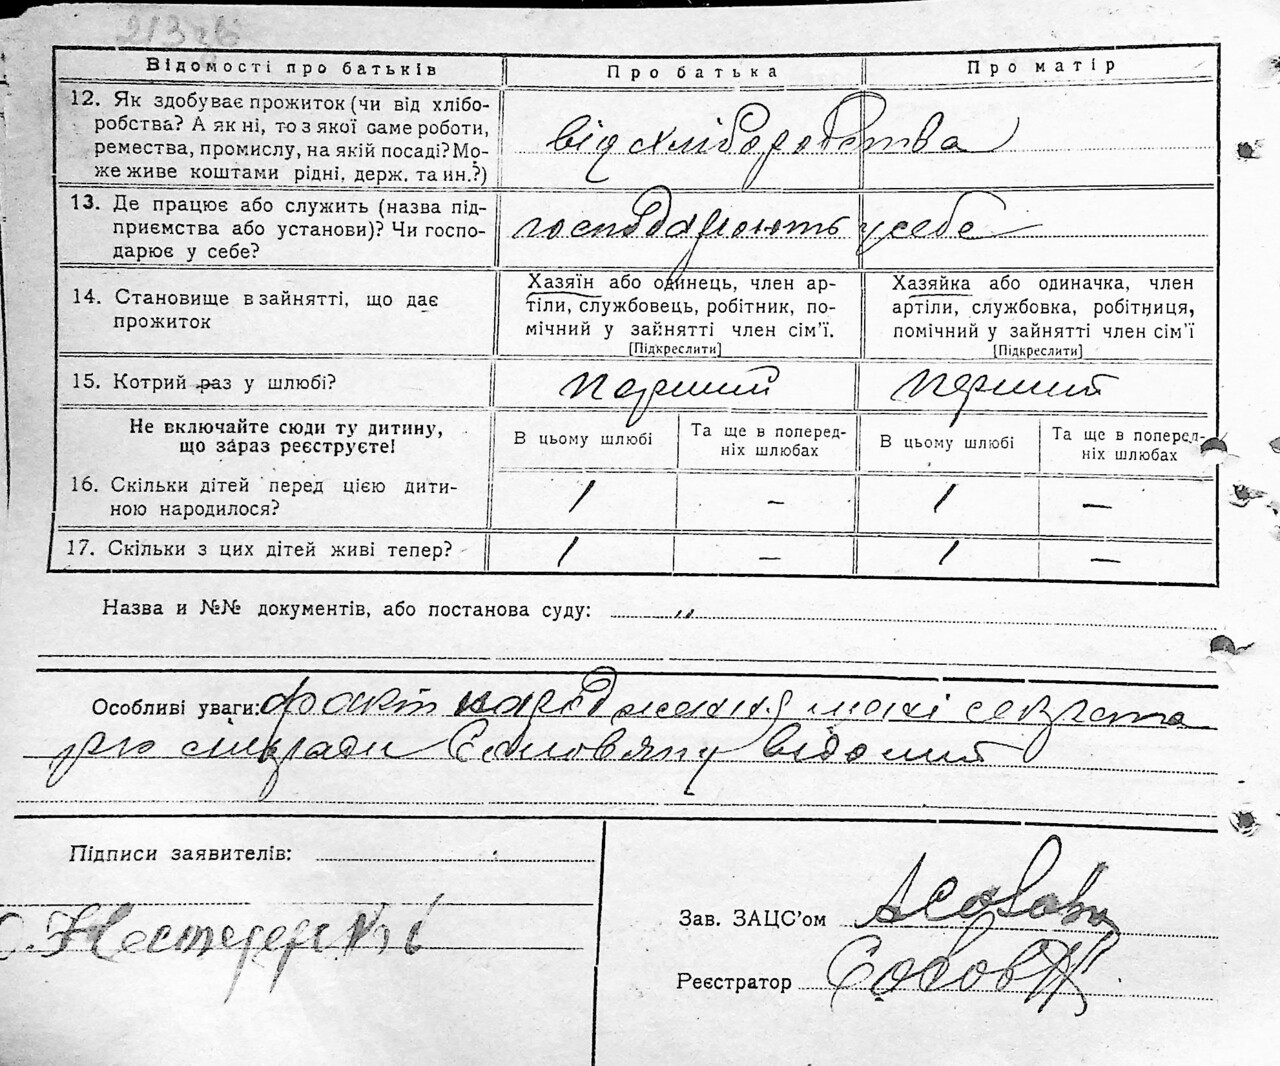 213 зв
Відомості про батьків
Про батька
Про матір
12. Як здобуває прожиток (чи від хлібо-
робства? А як ні, то з якої саме роботи,
ремества, промислу, на якій посаді? Мо-
же живе коштами рідні, держ. та ин.?)
від хліборобства
13. Де працює або служить (назва під-
приємства або установи)? Чи госпо-
дарює у себе?
господарюють у себе
14. Становище в зайнятті, що дає
прожиток
Хазяїн або одинець, член ар-
тіли, службовець, робітник, по-
мічний у зайнятті член сім'ї.
[Підкреслити]
Хазяйка або одиначка, член
артіли, службовка, робітниця,
помічний у зайнятті член сім'ї
[Підкреслити]
15. Котрий раз у шлюбі?
перший
перший
Не включайте сюди ту дитину,
що зараз реєструєте!
В цьому шлюбі
Та ще в поперед-
ніх шлюбах
В цьому шлюбі
Та ще в поперед-
ніх шлюбах
16. Скільки дітей перед цією дити-
ною народилося?
1 – 1 –
17. Скільки з цих дітей живі тепер?
1 – 1 –
Назва и №№ документів, або постанова суду: "
Особливі уваги: факт народження мені секрета
рю сільради відомий
Підписи заявителів:
Зав. ЗАЦС'ом
Реєстратор